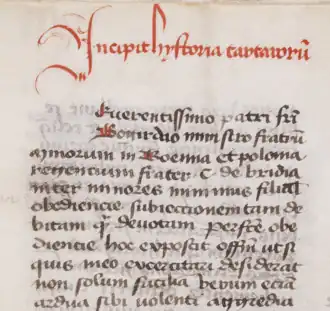 Incipit hystoria tartarorũ
Euerentissimo patri frĩ
Bogirdio ministro fratrũ
mĩorum in Boemia et polonia
regentium frater C de bridia
inter minores minimus filial
obediencie subiectionem tam de
bitam qʒ deuotam perfcte obe
diencie hoc exposcit offm̃ ut si
quis meo exercitari desiderat
non solum facilia verum eciã
ardua sibi violenti aggredia